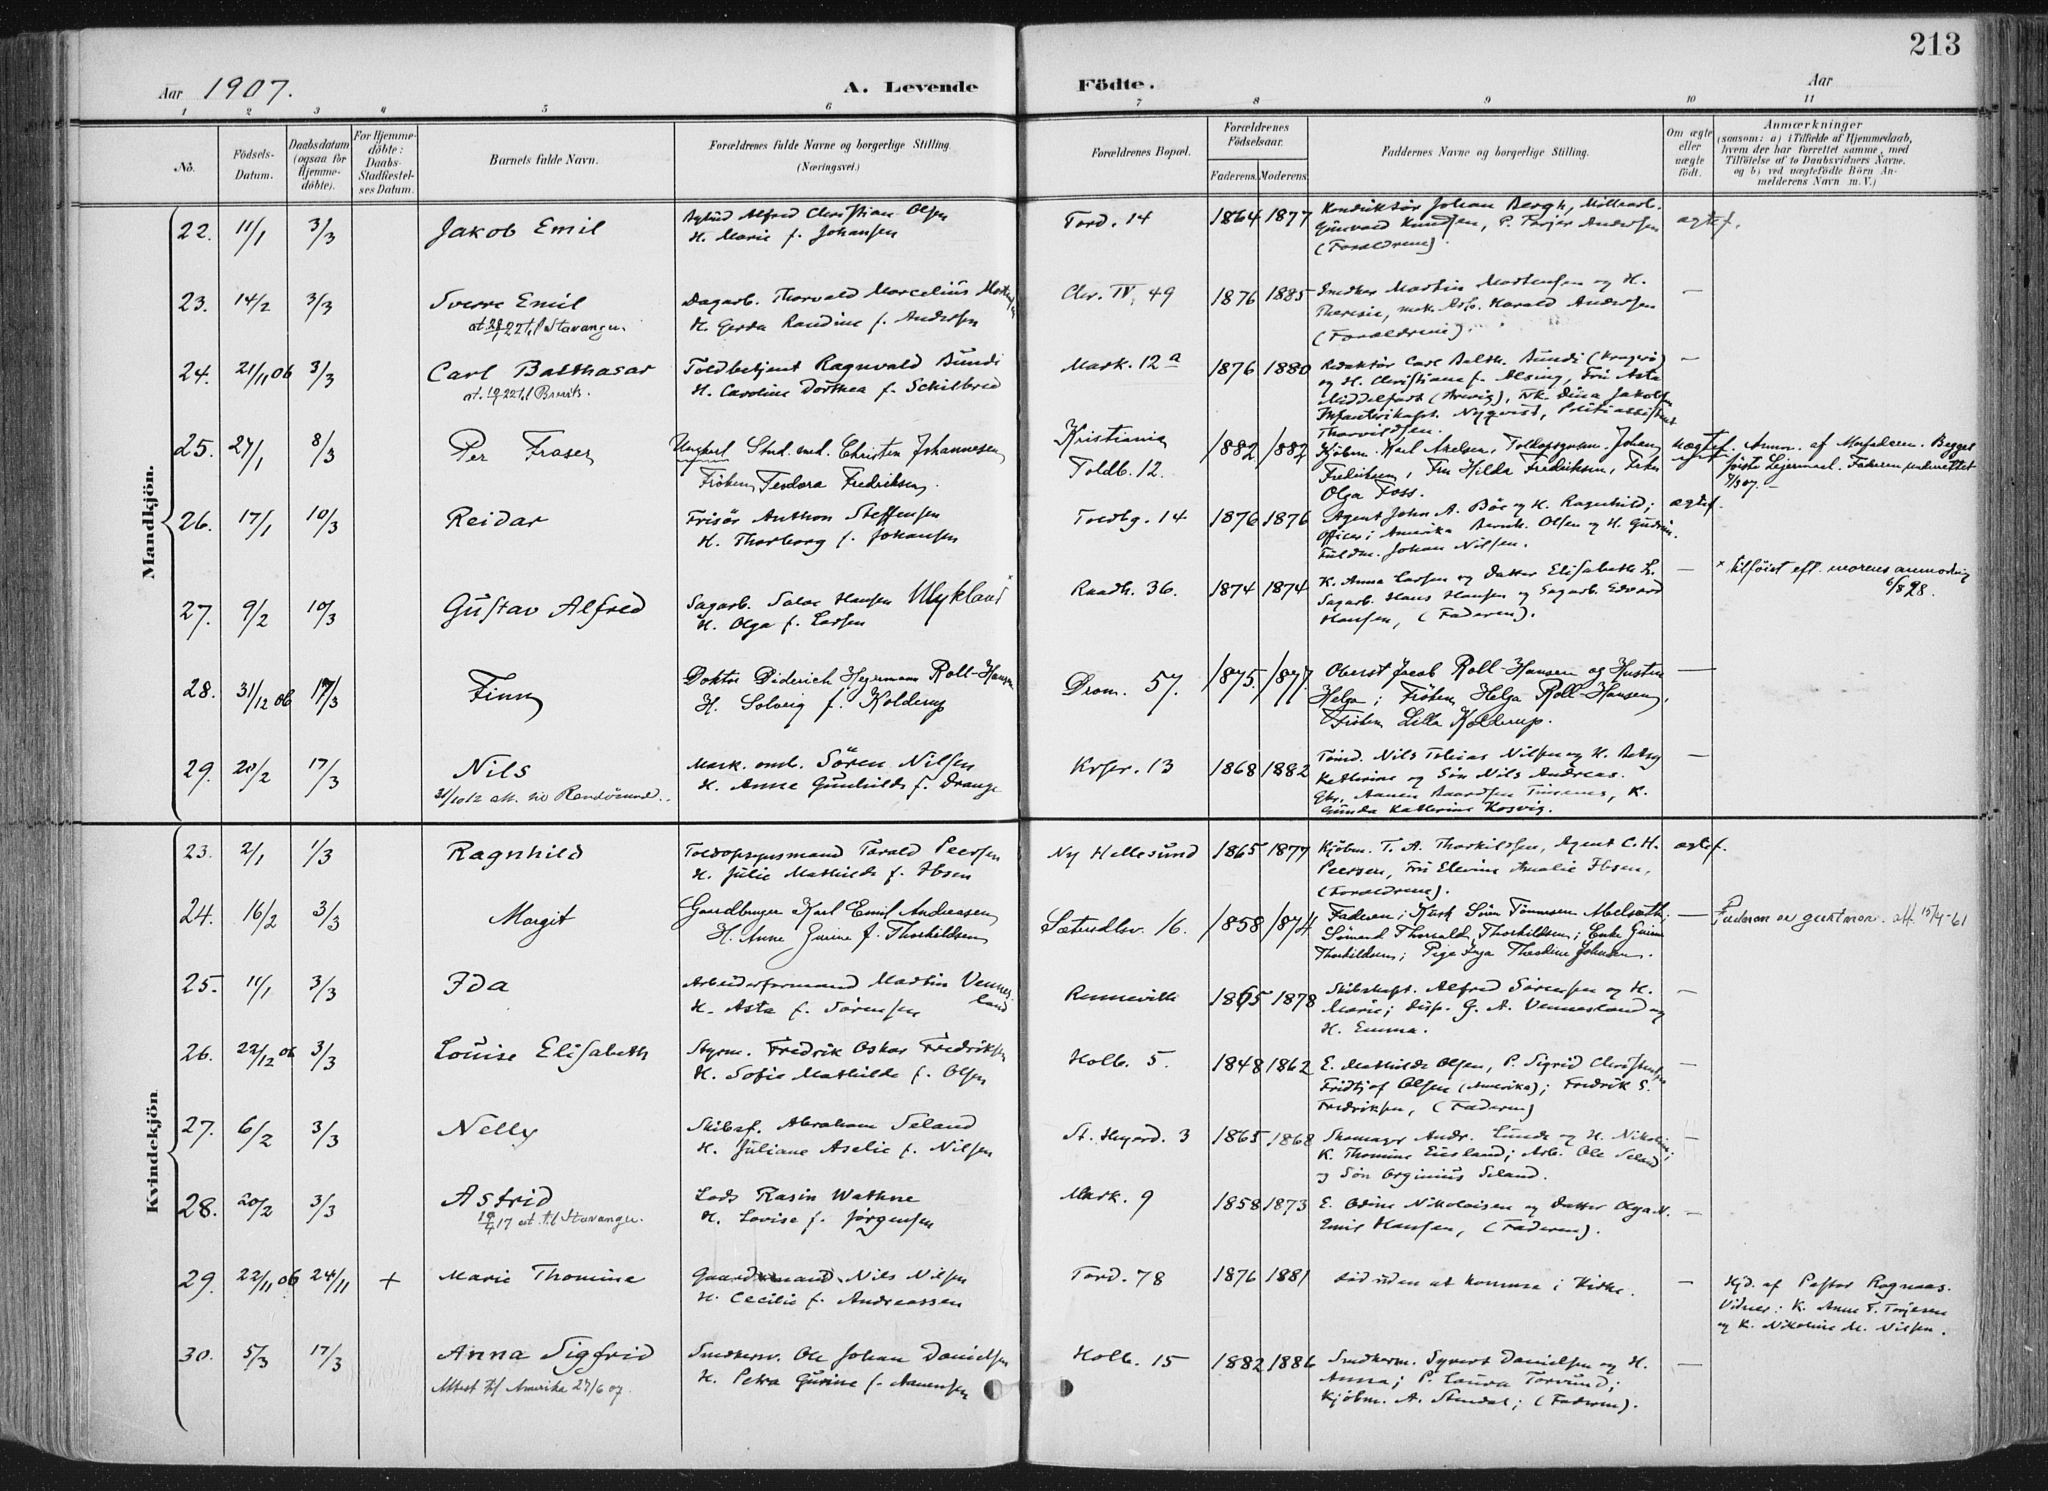 213
Aar 1907.
A. Levende
Födte.
Aar
1 2 3 4 5 6 7 8 9 10 11
No.
Födsels-Datum.
Daabsdatum (ogsaa for Hjemme-döbte).
For Hjemme-döbte: Daabs-Stadfæstel-ses Datum.
Barnets fulde Navn.
Forældrenes fulde Navne og borgerlige Stilling
(Næringsvei.)
Forældrenes Bopæl.
Forældrenes Födselsaar.
Faderens. Moderens.
Faddernes Navne og borgerlige Stilling.
Om ægte eller uægte födt.
Anmærkninger
(saasom: a) i Tilfælde af Hjemmedaab,
hvem der har forrettet samme, med
Tilföielse af to Daabsvidners Navne,
og b) ved uægtefödte Börn An-
melderens Navn m. V.)
Mandkjön.
22. 11/1 3/3 Jakob Emil
Alfred Christian Olsen
H. Marie f. Johansen
Tord. 14 1864 1877
Konduktör Johan Bergh, Möllearb.
Gunvald Knudsen, P. Andersen
(Forældrene).
ægtef.
23. 14/2 3/3 Sverre Emil
Dagarb. Thorvald Marcelius
H. Gerda Randine f. Andersen
Chr. IV, 49 1876 1885
Snedker Martin Mortensen og H.
Theresie, mek. Arb. Harald Andersen
(Forældrene).
—
24. 21/11 06 3/3 Carl Balthasar
at. 10/1 22 t. l Brevik.
Toldbetjent Ragnvald Bundi
H. Caroline Dorthea f. Schilbred
Mark. 12a 1876 1880
Redaktör Carl Balth. Bundi (Kragerö)
og H. Christiane f. Alsing, Fru Asta
Middelfart (Arevig), Frk. Dina Jakobsen
Infanterikapt. Nyqvist, Politiassistent
Thorvildsen.
—
25. 27/1 8/3 Per Fraser
Ungkarl Stud. med. Christen Johannesen
Fröken Teodora Fredriksen.
Kristiania
Toldb. 12.
1882 1882
Kjöbm. Karl Axelsen, Toldopsynsm. Johan
Fredriksen, Fru Hilda Fredriksen, Frk.
Olga Foss.
uægtef.
Anm. af Morfaderen. Begges
förste Leiermaal. Faderen underrettet
26. 17/1 10/3 Reidar
Frisör Anthon Steffensen
H. Thorborg f. Johansen
Toldbg. 14 1876 1876
Agent John A. Böe og H. Ragnhild;
Officer i Amerika Bernh. Olsen og H. Gudrun.
Fuldm. Johan Nilsen.
ægtef.
27. 9/2 10/3 Gustav Alfred
Sagarb. Salve Hansen
H. Olga f. Larsen
Raadh. 36. 1874 1874
K. Anna Larsen og Datter Elisabeth L.
Sagarb. Hans Hansen og Sagarb. Edvard
Hansen, (Faderen).
—
× tilföiet eft. morens anmodning
6/8 28.
28. 31/12 06 17/3 Finn
Doktor Diderich Hegermann Roll-Hansen
H. Solveig f. Kolderup
Dron. 57. 1875. 1877.
Oberst Jacob Roll-Hansen og Hustru
Helga; Fröken Helga Roll-Hansen,
Fröken Lilla Kolderup.
—
29. 20/2 17/3 Nils
31/10 12 att. til Randösund.
Mark. omb. Sören Nilsen
H. Anne Gunhilde f. Drange
1868 1882
Tömd. Nils Tobias Nilsen og H. Betsy
Kathrine og Sön Nils Andreas.
Gbr. Aanen Aanensen K.
Gunda Kathrine Kosvig.
—
Kvindekjön
23. 2/1 1/3 Ragnhild
Toldopsynsmand Tarald Peersen
H. Julie Mathilde f. Ibsen
Ny Hellesund 1865 1877
Kjöbm. T. A. Thorkildsen, Agent C. H.
Peersen, Fru Elevine Amalie Ibsen,
(Forældrene).
ægtef.
24. 16/2 3/3 Margit
Gaardbruger Karl Emil Andreassen
H. Anne Gurine f. Thorkildsen
Sætersdlsv. 16. 1858 1874
Faderen; Kusk Sören Tönnesen
Sömand Thorvald Thorkildsen; Enke Gurine
Thorkildsen; Pige Inga Theodine Johnsen.
—
Faderen er att. 15/4-61
25. 11/1 3/3 Ida
Arbeiderformand Martin Vennes-
land
H. Asta f. Sörensen
1865 1878
Skibskapt. Alfred Sörensen og H.
Marie; Disp. G. A. Vennesland og
H. Emma.
—
26. 22/12 06 3/3 Louise Elisabeth
Styrm. Fredrik Oskar Fredriksen
H. Sofie Mathilde f. Olsen
Holb. 5. 1848 1862
E. Mathilde Olsen, P. Sigrid Christensen
Fridtjof Olsen (Amerika); Fredrik S.
Fredriksen, (Faderen)
—
27. 6/2 3/3 Nelly
Skibsf. Abraham Seland
H. Juliane Aselie f. Nilsen
St. 3 1865 1868
Skomager Andr. Lunde og H. Nikoline;
K. Thomine Eiesland; Arb. Ole Seland
og Sön Orginius Seland.
—
28. 20/2 3/3 Astrid
10/4 17 at. t. l Stavanger.
Lods Rasin Wathne
H. Lovise f. Jörgensen
Mark. 9 1858 1873
E. Odine Nikolaisen og Datter Olga N.
Emil Hansen, (Faderen).
—
29. 22/11 06 24/11 + Marie Thomine
Gaardmand Nils Nilsen
H. Cecilie f. Andreassen
Tord. 78 1876 1881
död uden at komme i Kirke.
—
Hjd. af Pastor Rognaas.
Vidner: K. Anne T. Torjesen
og K. Nikoline M. Nilsen.
30. 5/3 17/3 Anna Sigfrid
Attest t/ Amerika 27/6 07.
Snedkersv. Ole Johan Danielsen
H. Petra Gurine f. Aanensen
Holb. 15 1882 1886
Snedkerm. Syvert Danielsen og H.
Anna; P. Laura Torsund;
Kjöbm. A. Stendal; (Faderen).
—